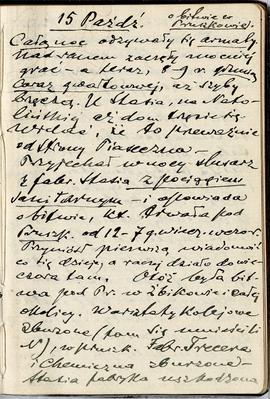 15 Paźdź.
o bitwie w
Pruszkowie.
Całą noc odzywały się armaty.
Nad ranem zaczęły mocniej
grać – a teraz, 8 g. r. grzmią
coraz gwałtowniej, aż szyby
brzęczą. U Stasia, na Nato-
lińskiej aż dom trzęsie się.
Widać, że to przeważnie
od strony Piaseczna –
Przyjechał w nocy ślusarz
z fabr. Stasia z pociągiem
sanitarnym – i opowiada
o bitwie, kt. trwała pod
Pruszk. od 12–7 g. wiecz. wczor.
Przyniósł pierwszą wiadomość
co się dzieje, a raczej działo do wie-
czora tam. Otóż była bit-
wa pod Pr. w Żbikowie i całej
okolicy. Warsztaty kolejowe
zburzone (tam się umieścili
N), w Pruszk. Fabr. Troetzera
i chemiczna zburzone –
Stasia fabryka uszkodzona